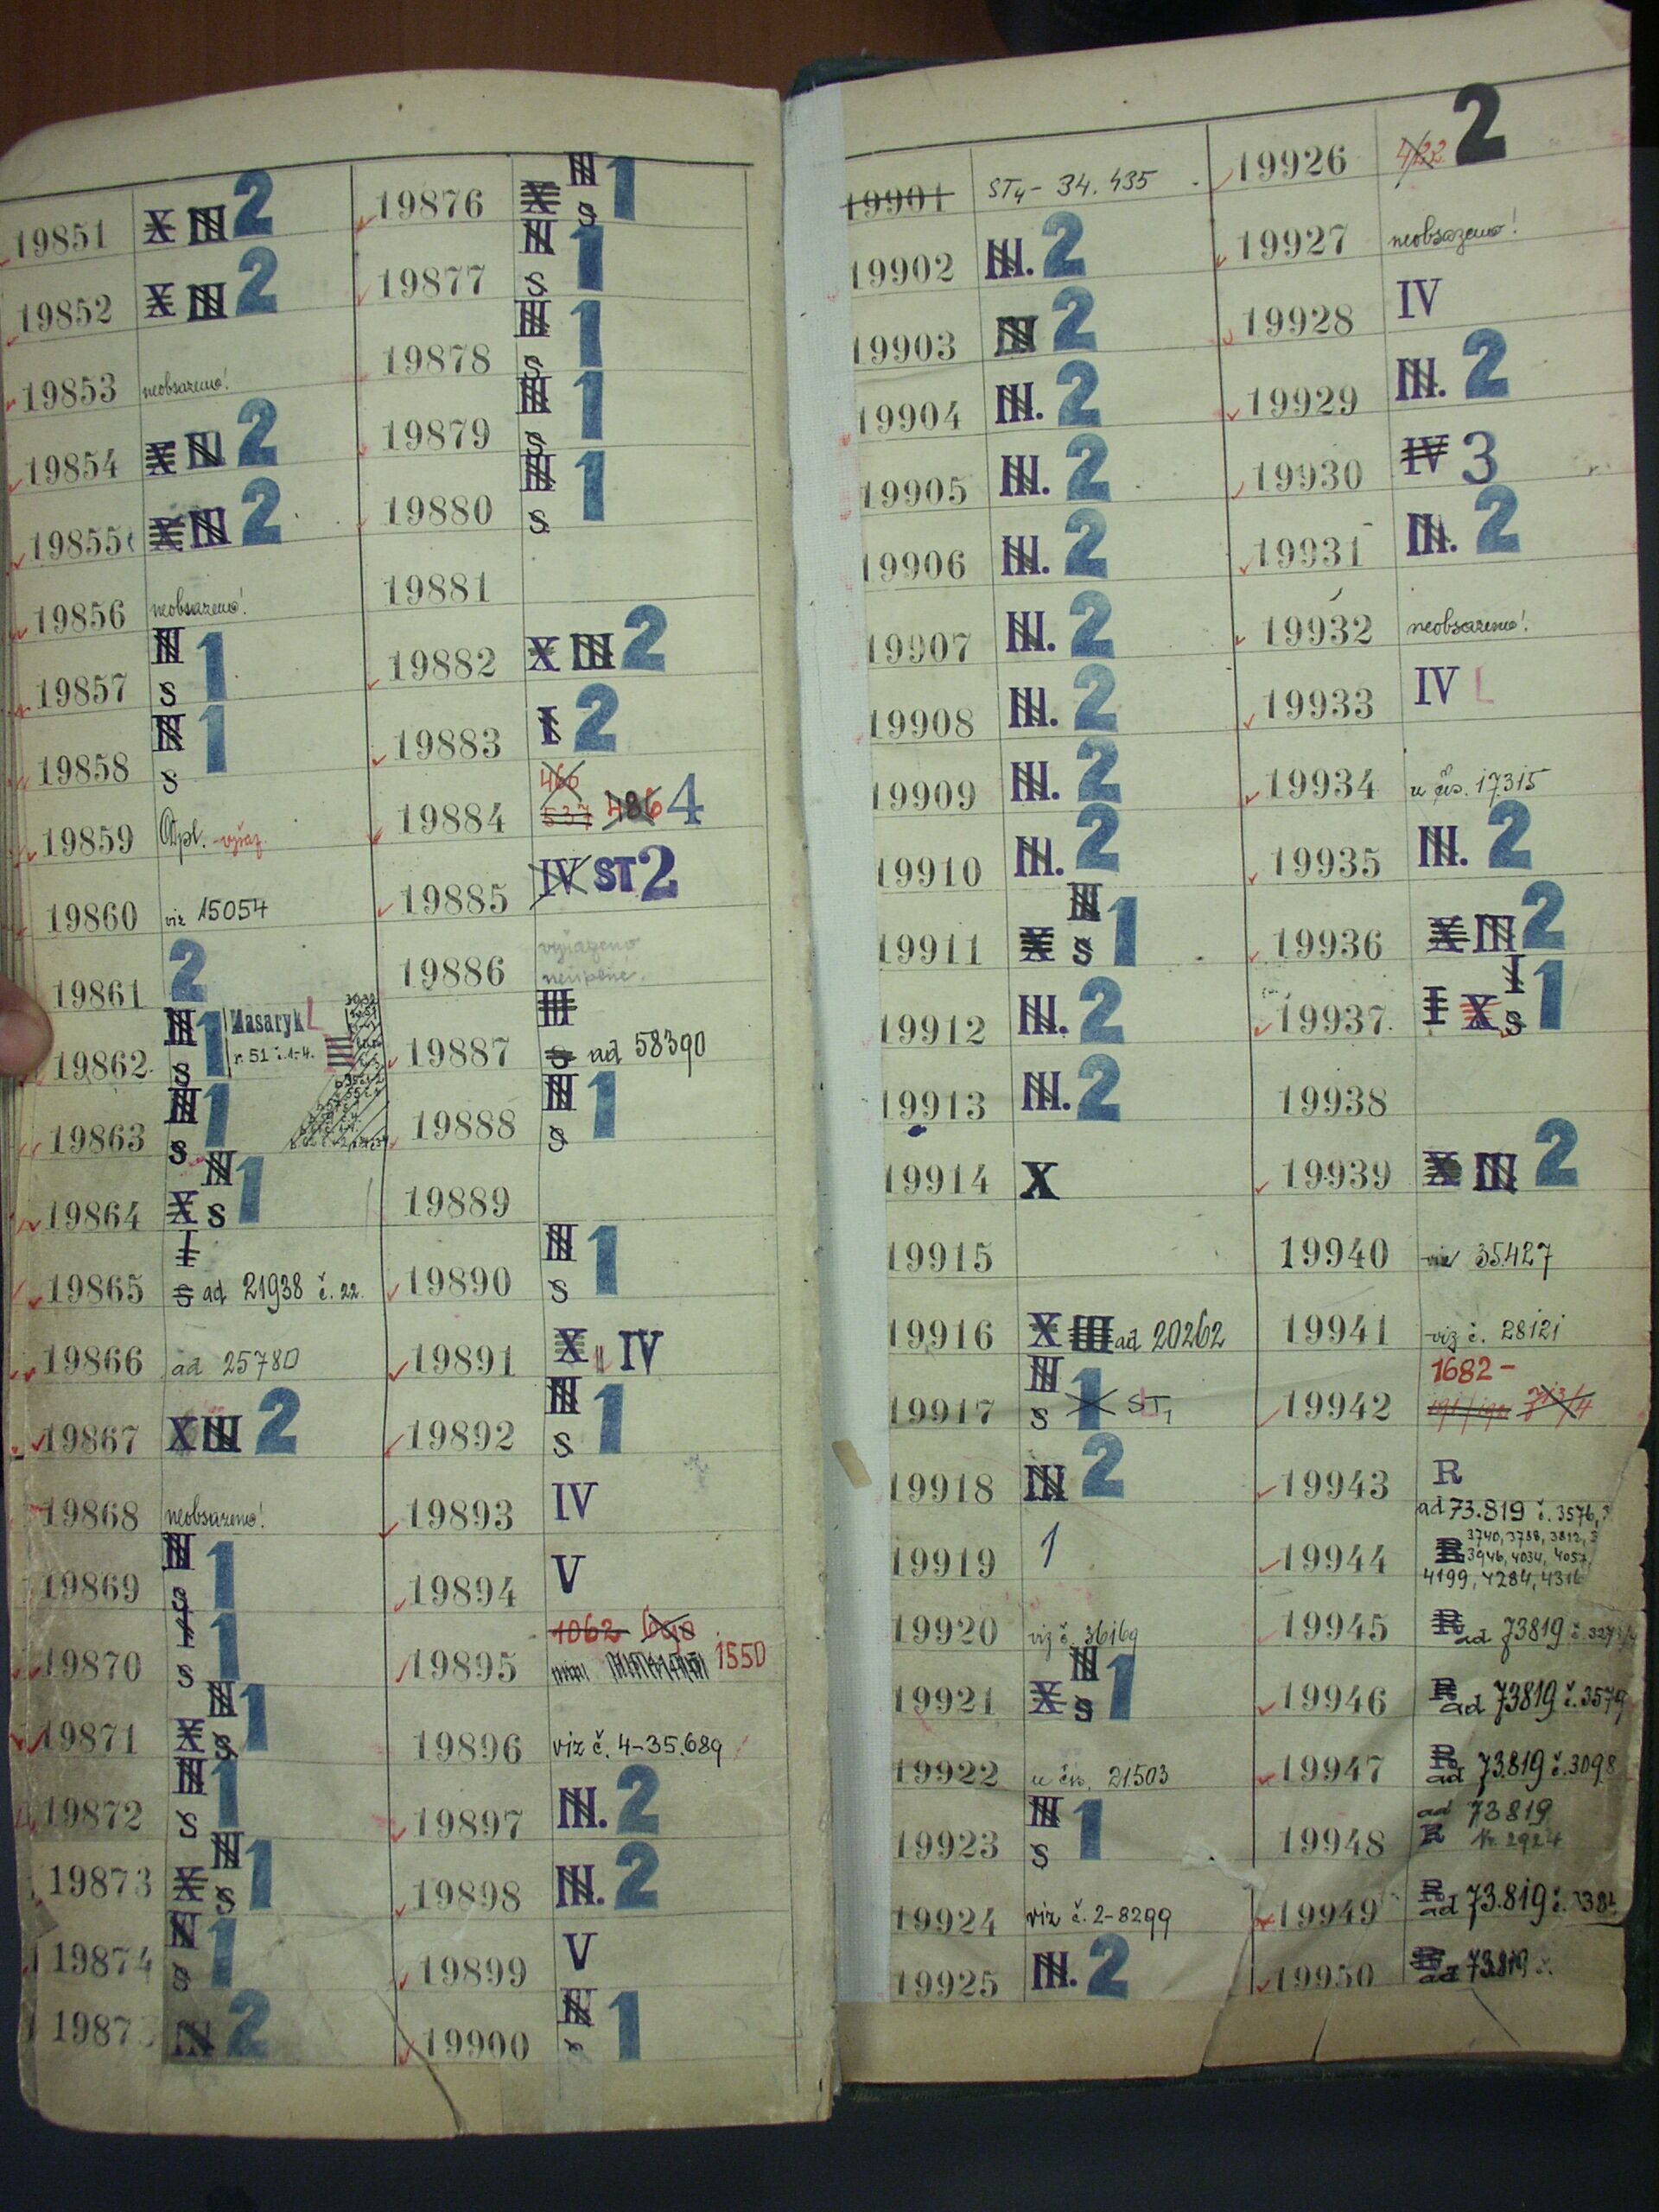 19851 X III 2
19852 X III 2
19853 neobsazeno!
19854 X III 2
19855 X III 2
19856 neobsazeno!
19857 III S 1
19858 III S 1
19859 Odpl. vyřaz.
19860 viz 15054
19861 2
19862 III S 1 Masaryk L
r. 51 č. 1-4.
19863 III S 1
19864 X III S 1
19865 I S ad 21938 č. 22.
19866 ad 25780
19867 X III 2
19868 neobsazeno!
19869 III S 1
19870 I S 1
19871 X III S 1
19872 III S 1
19873 X III S 1
19874 III S 1
1987 III 2
19876 X III S 1
19877 III S 1
19878 III S 1
19879 III S 1
19880 III S 1
19881
19882 X III 2
19883 I 2
19884 466 537 486 4
19885 IV ST 2
19886 vyřazeno
neúplné.
19887 III S ad 58390
19888 III S 1
19889
19890 III S 1
19891 X IV
19892 III S 1
19893 IV
19894 V
19895 1062 1550
19896 viz č. 4-35.689
19897 III. 2
19898 III. 2
19899 V
19900 III S 1
19901 ST4 - 34.435
19902 III. 2
19903 III 2
19904 III. 2
19905 III. 2
19906 III. 2
19907 III. 2
19908 III. 2
19909 III. 2
19910 III. 2
19911 X III S 1
19912 III. 2
19913 III. 2
19914 X
19915
19916 X III ad 20262
19917 III S 1 ST1
19918 III 2
19919 1
19920 viz č. 36169
19921 X III S 1
19922 u čís. 21503
19923 III S 1
19924 viz č. 2-8299
19925 III. 2
19926 422 2
19927 neobsazeno!
19928 IV
19929 III. 2
19930 IV 3
19931 III. 2
19932 neobsazeno!
19933 IV L
19934 u čís. 17315
19935 III. 2
19936 X III 2
19937 I X I S 1
19938
19939 X III 2
19940 viz 35427
19941 viz č. 28121
19942 1682-
19943 R
ad 73.819 č. 3576,
19944 R 3740, 3788, 3812,
3946, 4034, 4057,
4199, 4284, 4316
19945 R ad 73819
19946 R ad 73819 č. 3579
19947 R ad 73.819 č. 3098
19948 ad 73819
R Nr. 2924
19949 R ad 73.819 č.
19950 R ad 73.819 č.